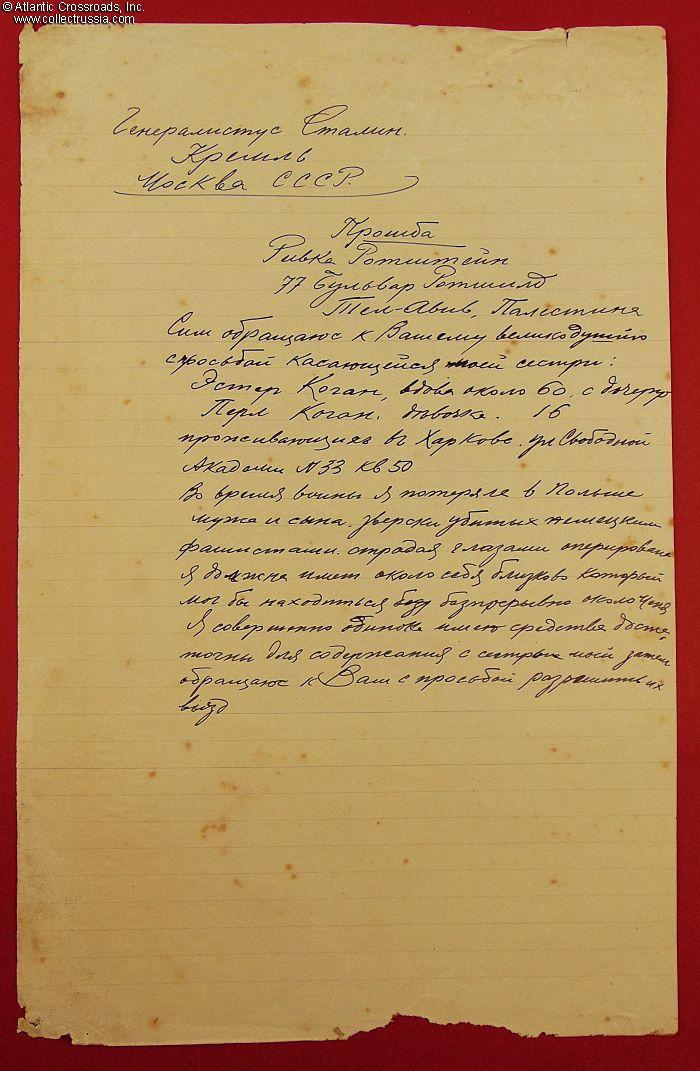 © Atlantic Crossroads, Inc.
www.collectrussia.com
Генералистус Сталин.
Кремль
Москва СССР.
Прошба
Ривка Ротштейн
77 Бульвар Ротшилд
Тел-Авив, Палестина
Сим обращаюс к Вашему великодушию
с просьбой касающейся моей сестри:
Эстер Коган, вдова около 60. с дочерю
Перл Коган. дѣвочка. 16
проживающиев в г Харкове. ул Свободной
Академи N 33 кв 50
Во время воины я потеряла в Польше
мужа и сына. зверски убитых немецким
фашистами. страдая глазами оперирована
я должна имет около себя близково который
мог бы находиться безпрерывно около меня
Я совершенно одинока имею средства доста-
точны для содержания с сестры моей затем
обращаюс к Вам с просьбой разрешить их
выезд